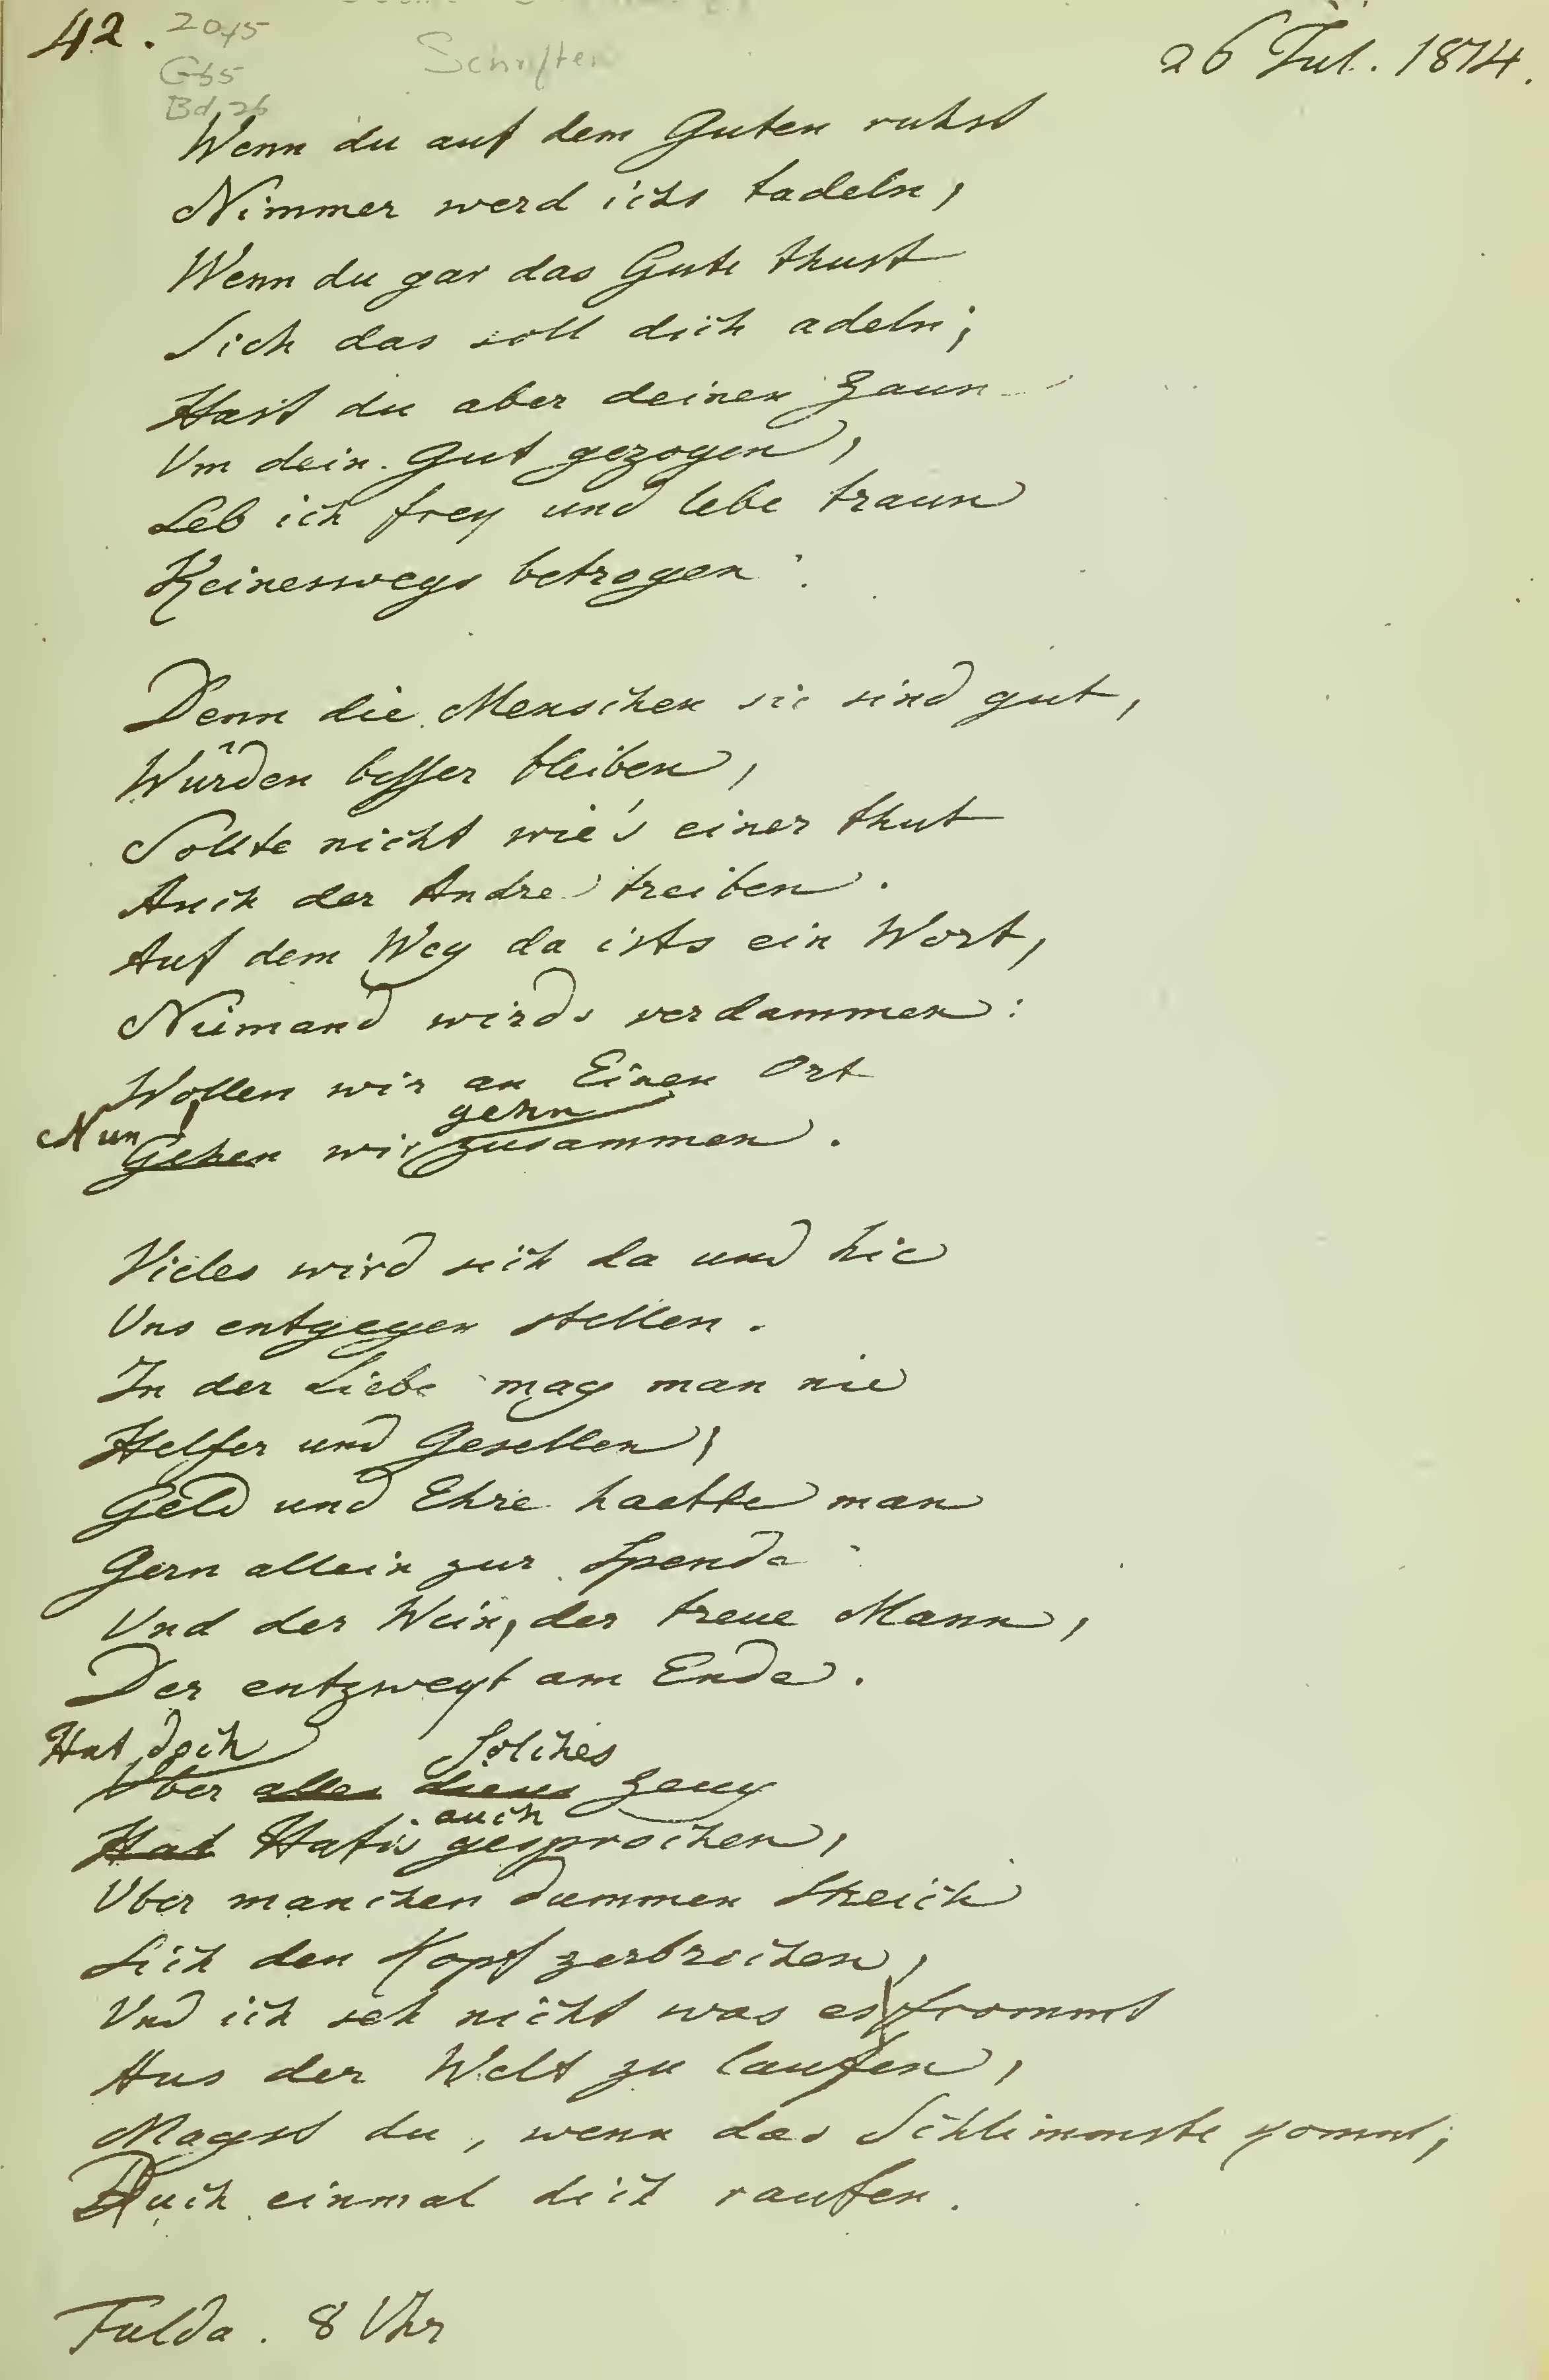 42.
2045
G55
Bd. 26
Schriften
26 Jul. 1814.
Wenn du auf dem Guten ruhst
Nimmer werd ichs tadeln,
Wenn du gar das Gute thust
Sich das soll dich adeln;
Hast du aber deinen Zaun
Um dein Gut gezogen,
Leb ich frey und lebe traun
Keineswegs betrogen.
Denn die Menschen sie sind gut,
Würden besser bleiben,
Sollte nicht wie's einer thut
Auch der Andre treiben.
Auf dem Weg da ists ein Wort,
Niemand wirds verdammen:
Wollen wir an Einen Ort
gehn
Nun! Gehen wir zusammen.
Vieles wird sich da und hie
Uns entgegen stellen.
In der Liebe mag man nie
Helfer und Gesellen;
Geld und Ehre haette man
Gern allein zur Spende
Und der Wein, der treue Mann,
Der entzweyt am Ende.
Hat doch Solches
Über alles dieses Zeug
auch
Hat Hafis gesprochen,
Uber manchen dummen Streich
Sich den Kopf zerbrochen,
Und ich seh nicht was es frommt
Aus der Welt zu laufen,
Magst du, wenn das Schlimmste kommt,
Auch einmal dich raufen.
Fulda. 8 Uhr